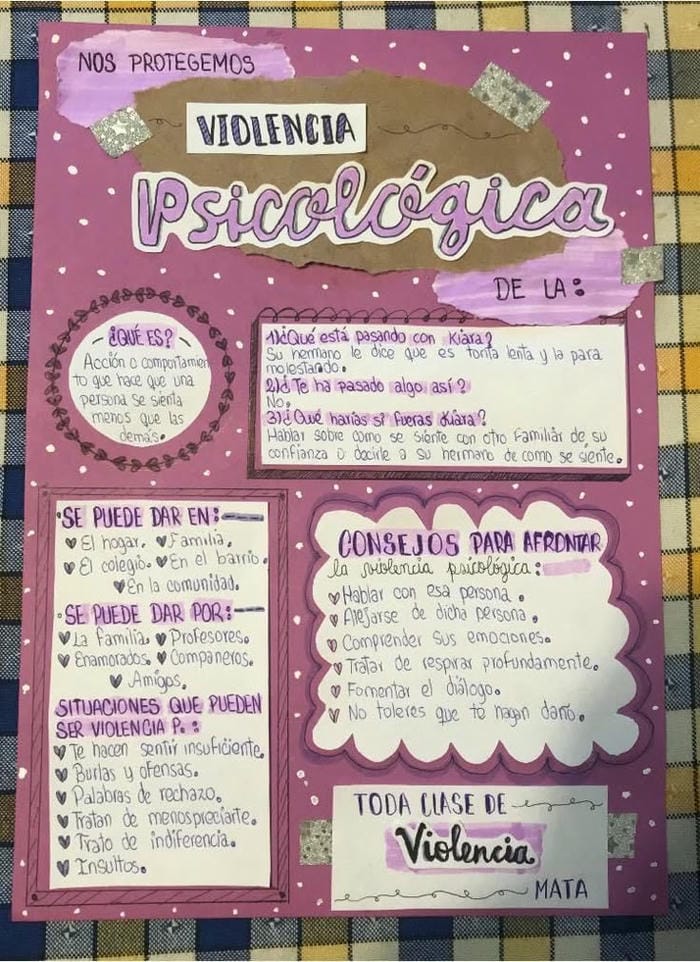 NOS PROTEGEMOS
VIOLENCIA
Psicológica
DE LA:
¿QUÉ ES?
Acción o comportamien
to que hace que una
persona se sienta
menos que las
demás.
1)¿Qué está pasando con Kiara?
Su hermano le dice que es tonta lenta y la para
molestando.
2)¿Te ha pasado algo así?
No.
3)¿Qué harías si fueras Kiara?
Hablar sobre como se siente con otro familiar de su
confianza o decirle a su hermano de como se siente.
SE PUEDE DAR EN:
El hogar. Familia.
El colegio. En el barrio.
En la comunidad.
SE PUEDE DAR POR:
La familia. Profesores.
Enamorados. Compañeros.
Amigos.
SITUACIONES QUE PUEDEN
SER VIOLENCIA P. :
Te hacen sentir insuficiente.
Burlas y ofensas.
Palabras de rechazo.
Tratan de menospreciarte.
Trato de indiferencia.
Insultos.
CONSEJOS PARA AFRONTAR
la violencia psicológica:
Hablar con esa persona.
Alejarse de dicha persona.
Comprender sus emociones.
Tratar de respirar profundamente.
Fomentar el diálogo.
No toleres que te hagan daño.
TODA CLASE DE
Violencia
MATA